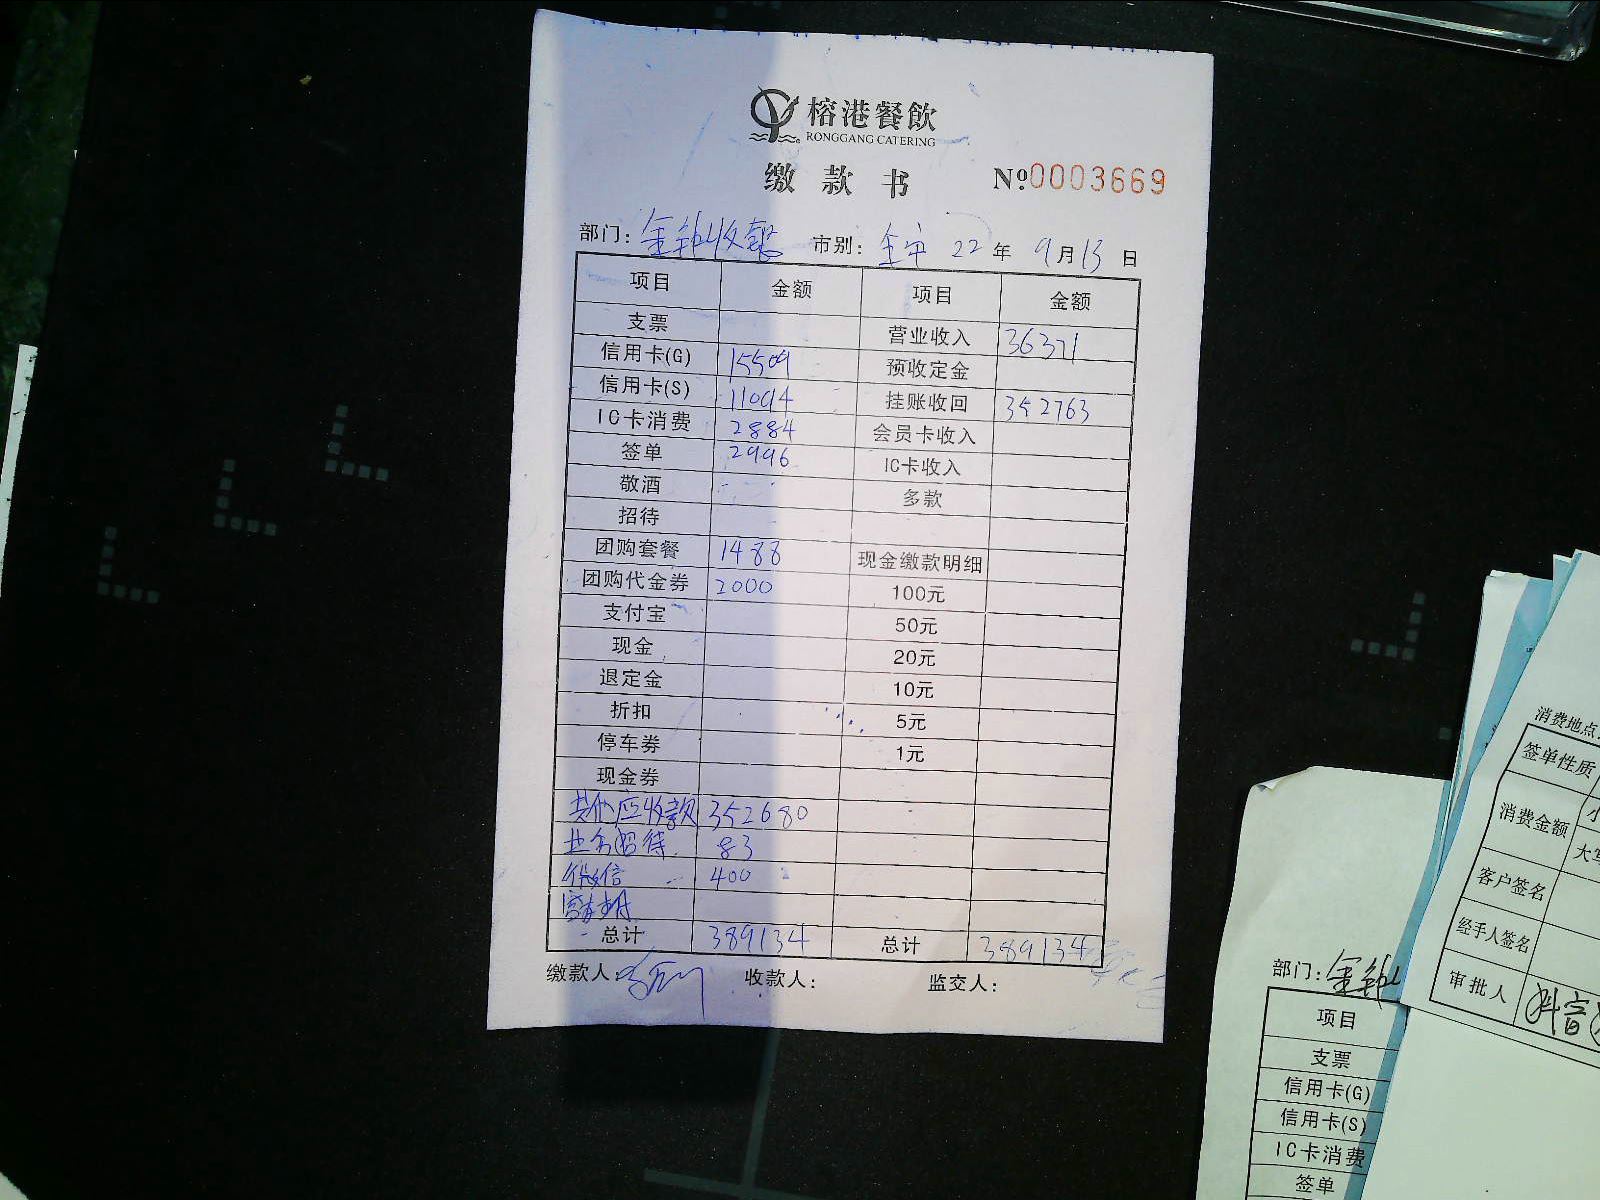 榕港餐飲
RONGGANG CATERING
缴款书 Nº0003669
部门: 金钟收银 市别: 全市 22年9月13日
项目 金额 项目 金额
支票 营业收入 36371
信用卡(G) 15509 预收定金
信用卡(S) 11094 挂账收回 352763
IC卡消费 2884 会员卡收入
签单 2996 IC卡收入
敬酒 多款
招待
团购套餐 1488 现金缴款明细
团购代金券 2000 100元
支付宝 50元
现金 20元
退定金 10元
折扣 5元
停车券 1元
现金券
其他应收款 352680
业务招待 83
微信 400
总计 389134 总计 389134
缴款人: 收款人: 监交人:
消费地点
签单性质
消费金额 小
大写
客户签名
经手人签名
审批人
部门: 金钟
项目
支票
信用卡(G)
信用卡(S)
IC卡消费
签单